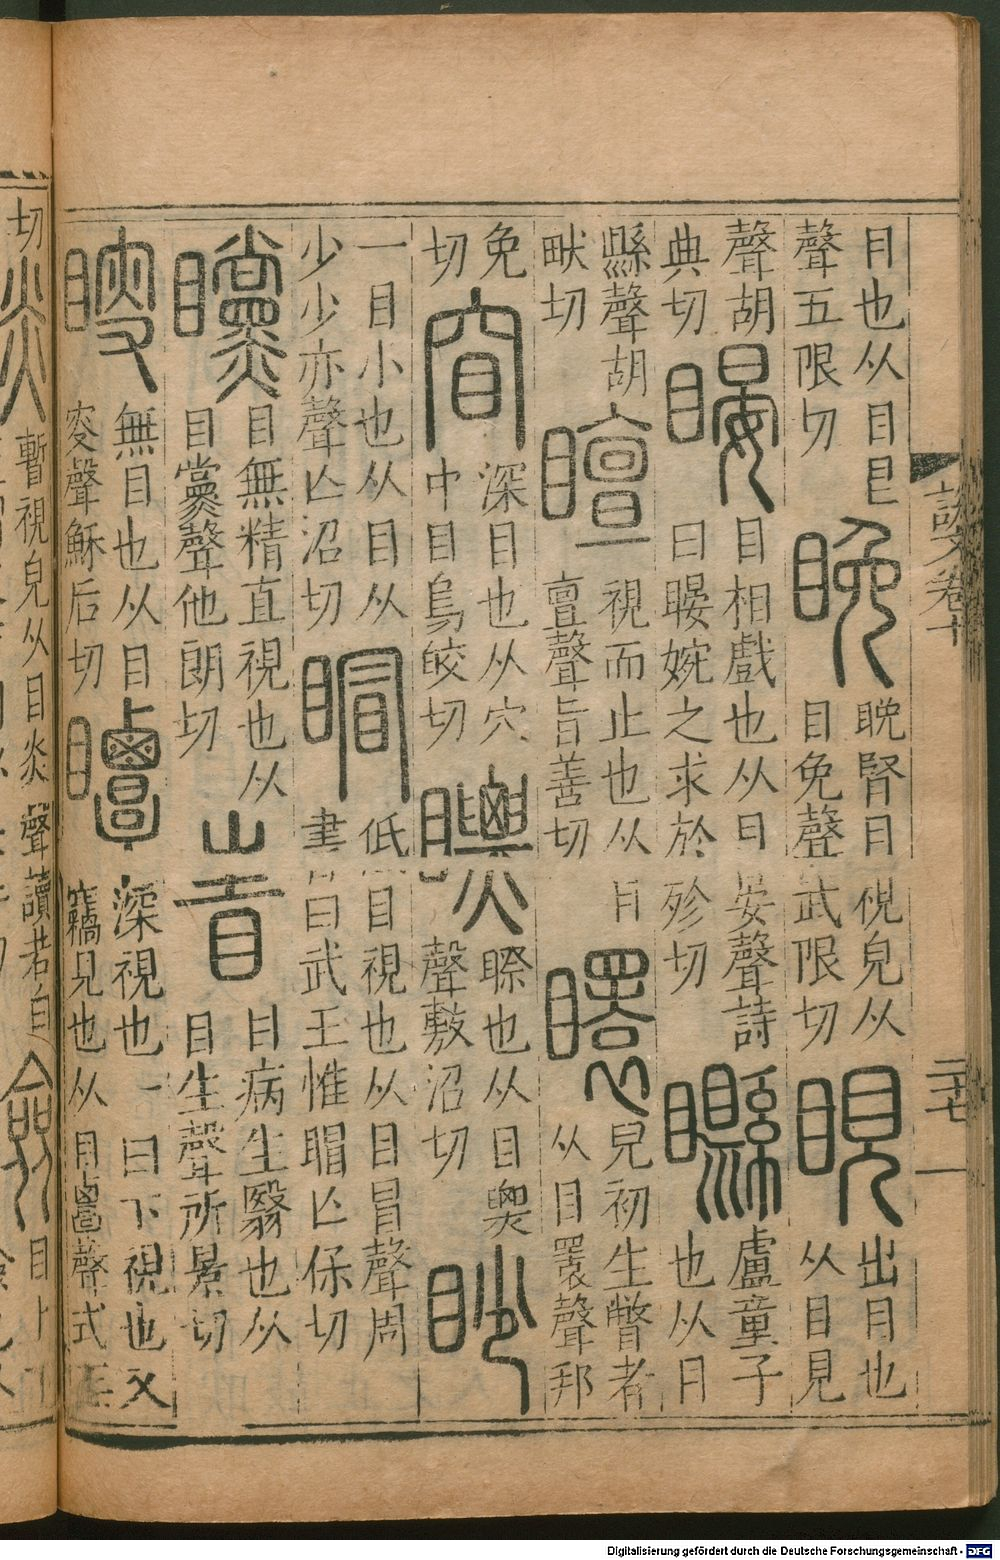 說文卷十
二十七
目也从目㫐
聲五限切
睌
睌䀼目視皃从
目免聲武限切
睍
出目也
从目見
聲胡
典切
䁙
目相戲也从目晏聲詩
曰䁙婉之求於殄切
矊
盧童子
也从目
縣聲胡
畎切
視而止也从目
亶聲旨善切
兒初生瞥者
从目瞏聲邦
免
切
窅
深目也从穴
中目烏皎切
瞟
瞭也从目㶾
聲敷沼切
眇
一目小也从目从
少少亦聲亡沼切
𥈆
低目視也从目冒聲周
書曰武王惟𥈆亡保切
矘
目無精直視也从
目黨聲他朗切
眚
目病生翳也从
目生聲所景切
瞍
無目也从目
叜聲穌后切
瞫
深視也一曰下視也又
竊見也从目覃聲式荏
切
暫視皃从目炎聲讀若白